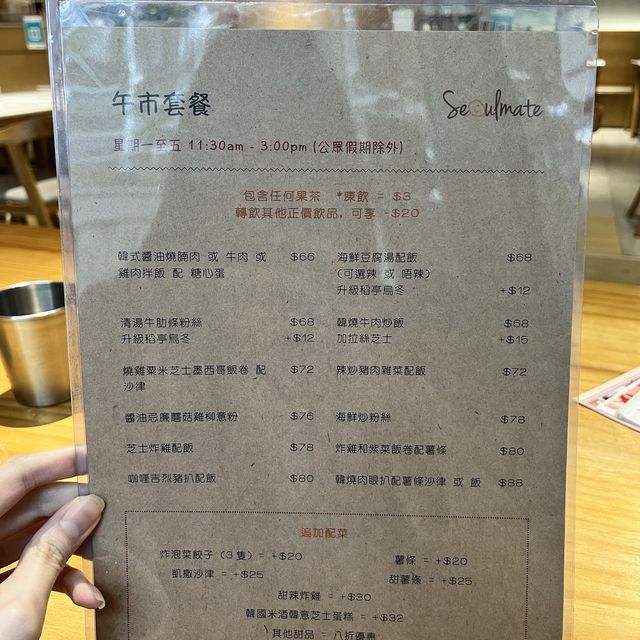 午市套餐
Seoulmate
星期一至五 11:30am - 3:00pm (公眾假期除外)
包含任何果茶 *凍飲 = $3
轉飲其他正價飲品, 可享 -$20
韓式醬油燒腩肉 或 牛肉 或 $66
雞肉拌飯 配 糖心蛋
清湯牛肋條粉絲 $68
升級稻亭烏冬 +$12
燒雞粟米芝士墨西哥飯卷 配 $72
沙律
醬油忌廉蘑菇雞柳意粉 $76
芝士炸雞配飯 $78
咖喱吉烈豬扒配飯 $80
海鮮豆腐湯配飯 $68
(可選辣 或 唔辣)
升級稻亭烏冬 +$12
韓燒牛肉炒飯 $68
加拉絲芝士 +$15
辣炒豬肉雜菜配飯 $72
海鮮炒粉絲 $78
炸雞和紫菜飯卷配薯條 $80
韓燒肉眼扒配薯條沙律 或 飯 $88
追加配菜
炸泡菜餃子 (3 隻) = +$20 薯條 = +$20
凱撒沙律 = +$25 甜薯條 = +$25
甜辣炸雞 = +$30
韓國米酒韓意芝士蛋糕 = +$32
其他甜品 = 八折優惠